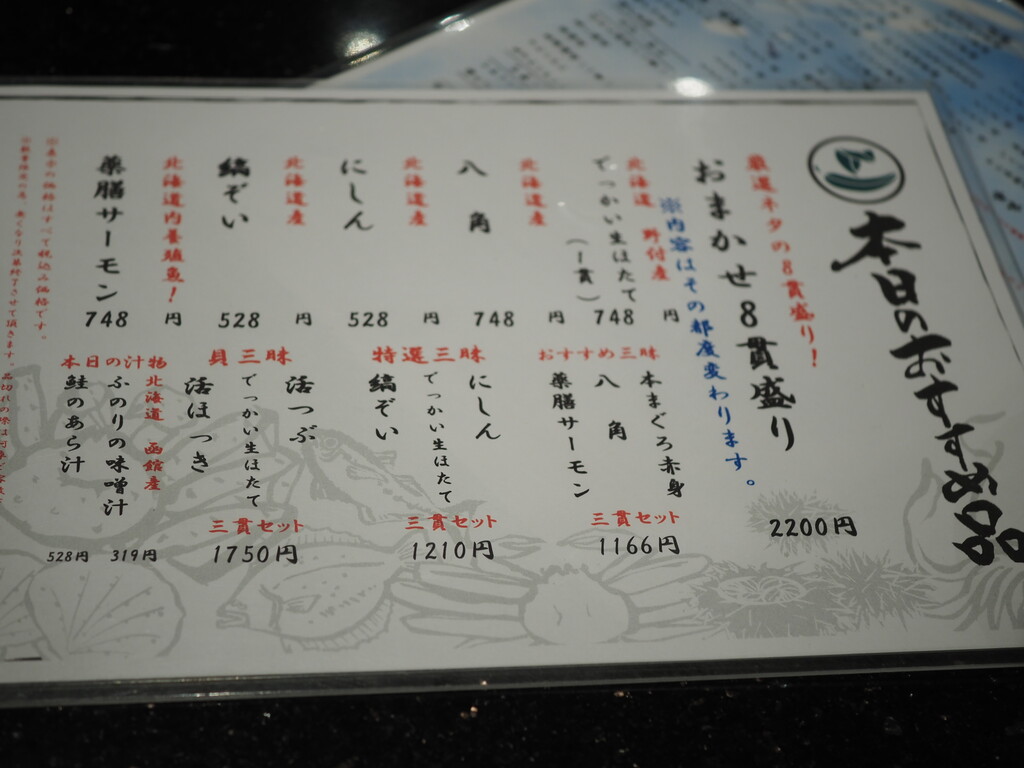 本日のおすすめ品
厳選ネタの8貫盛り!
おまかせ8貫盛り
2200円
※内容はその都度変わります。
北海道 野付産
でっかい生ほたて
(1貫)
748円
北海道産
八角
748円
北海道産
にしん
528円
北海道産
縞ぞい
528円
北海道内養殖魚!
薬膳サーモン
748円
おすすめ三昧
本まぐろ赤身
八角
薬膳サーモン
三貫セット
1166円
特選三昧
にしん
でっかい生ほたて
縞ぞい
三貫セット
1210円
貝三昧
活つぶ
でっかい生ほたて
活ほっき
三貫セット
1750円
本日の汁物
北海道 函館産
ふのりの味噌汁
319円
鮭のあら汁
528円
※表示の価格はすべて税込み価格です。